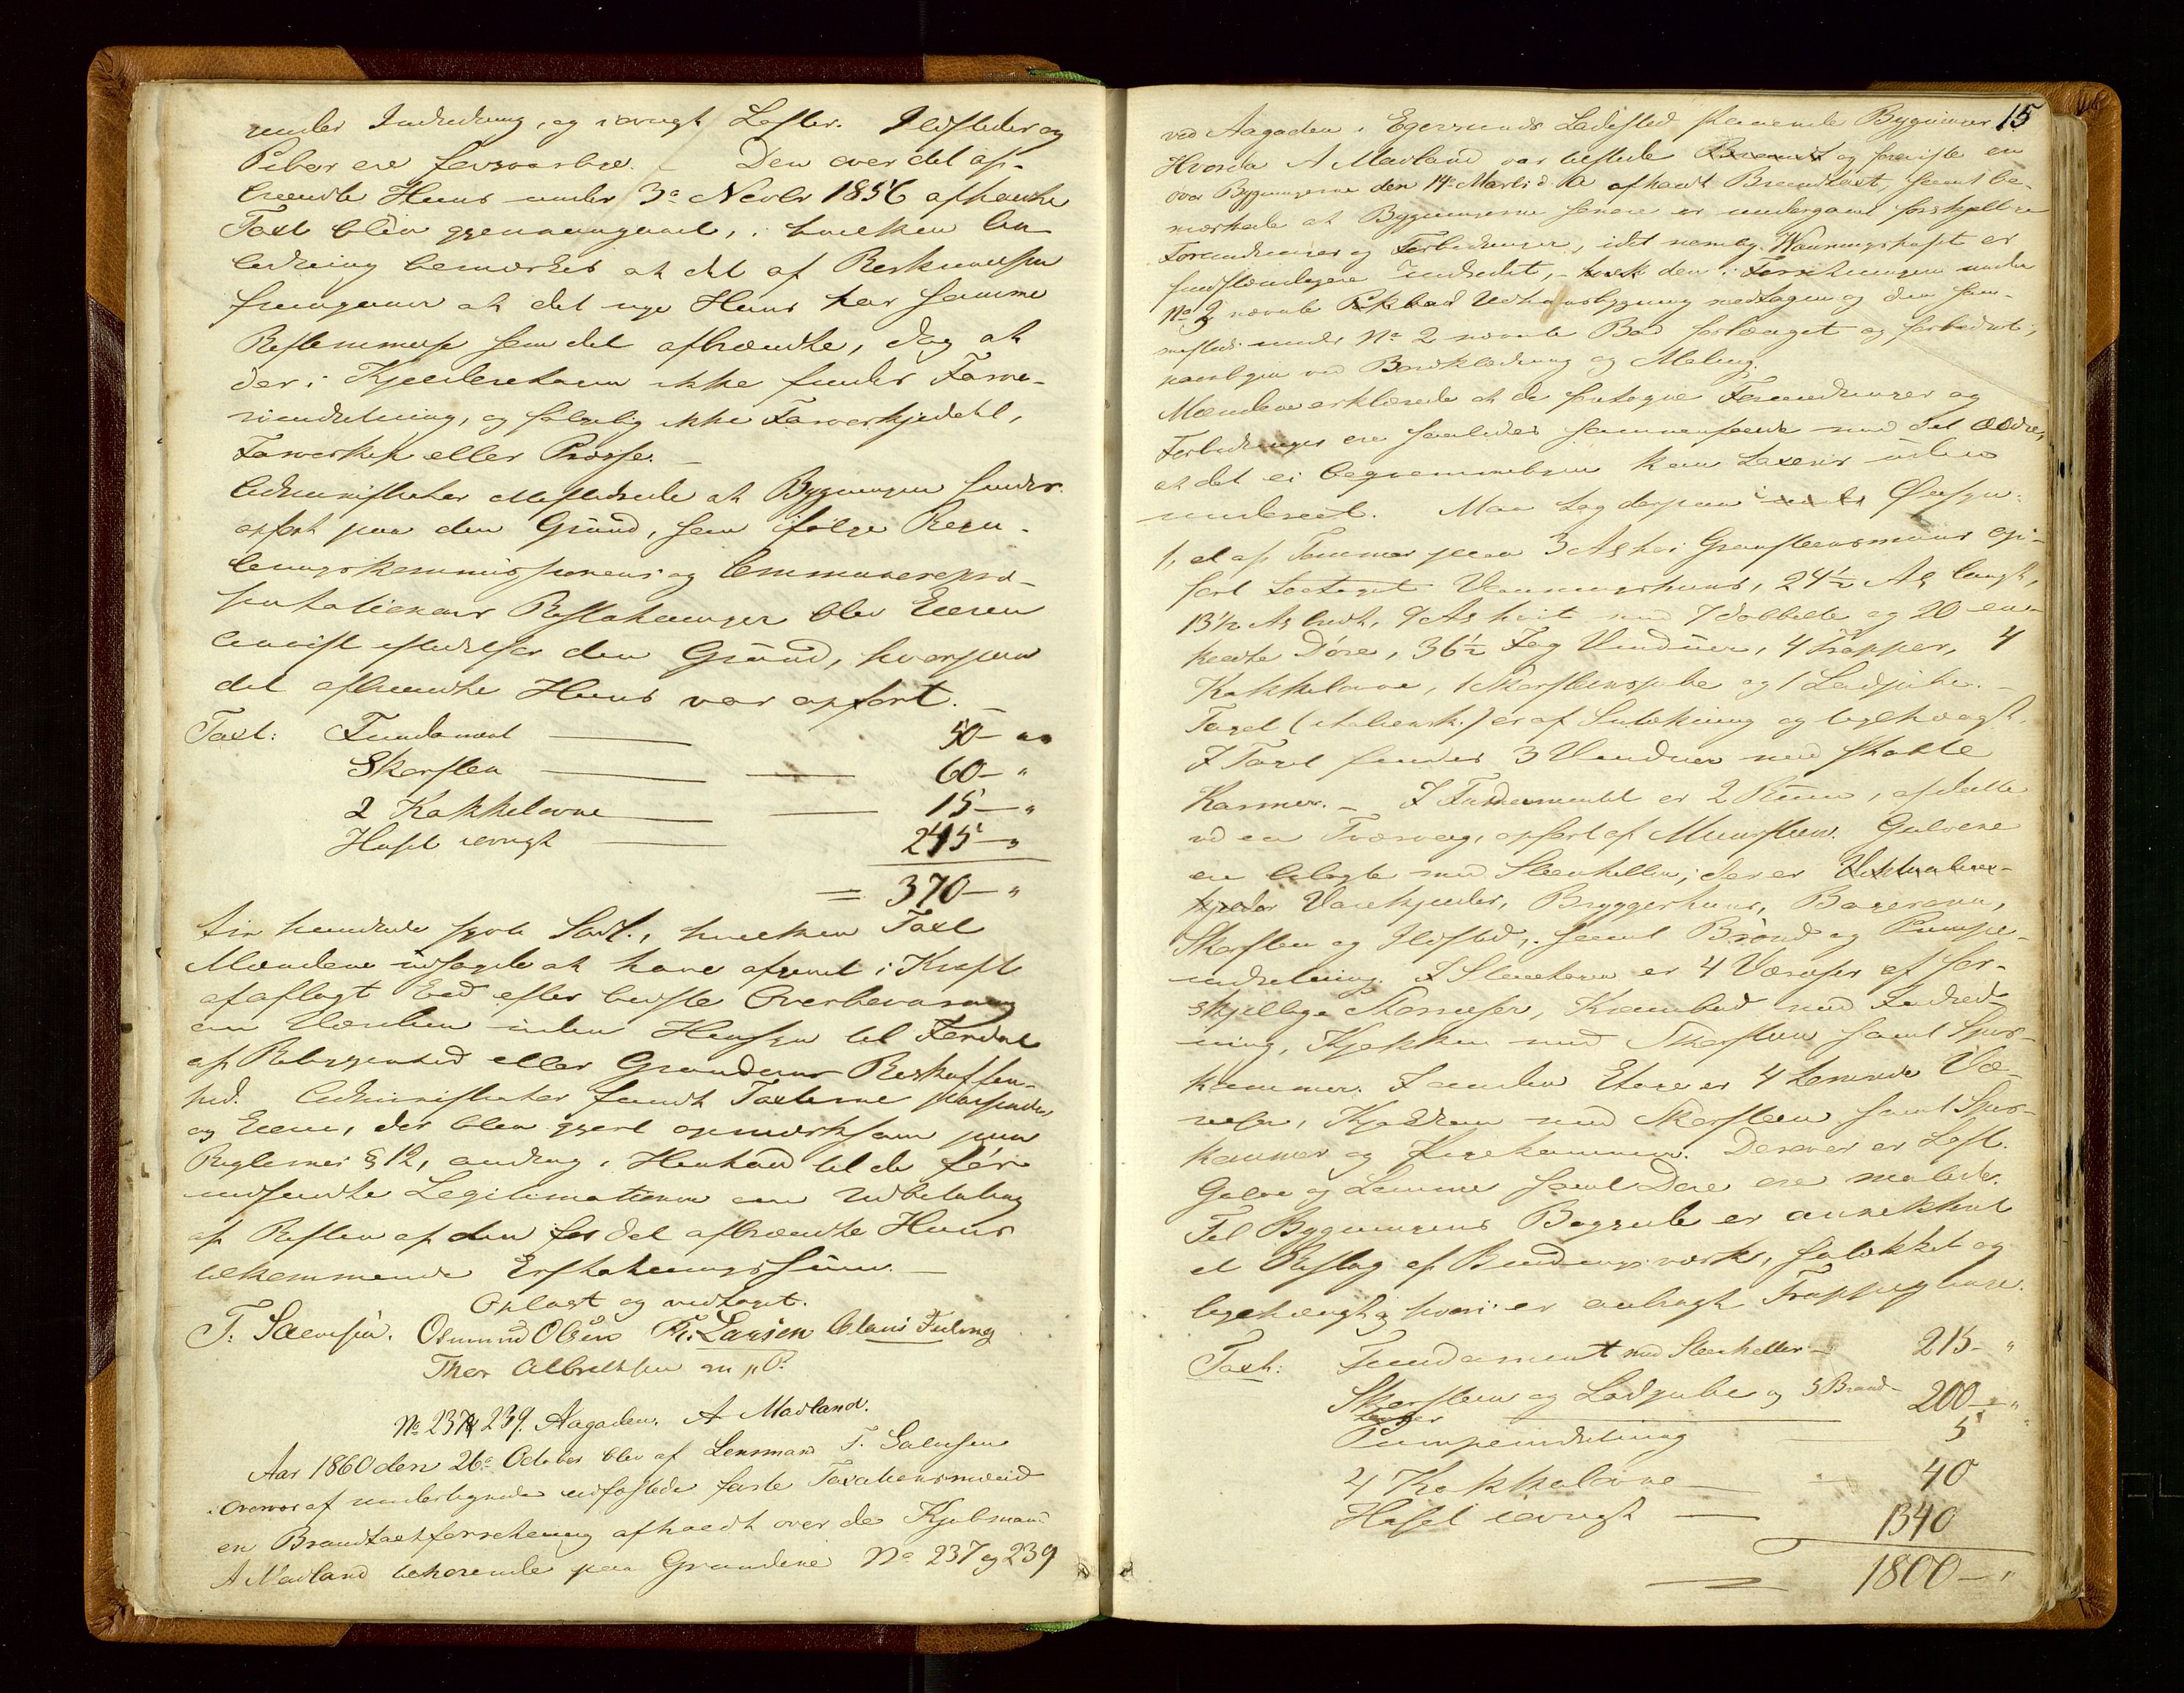 under Indredning, og iøvrigt Lofter. Ildsteder og
Piber ere forsvarlige. – Den over det af-
brændte Huus under 3e Novbr 1856 afholdte
Taxt blev gjennemgaaet, i hvilken An-
ledning bemærkes at det af Beskrivelsen
fremgaaer at det nye Huus har samme
Bestemmelse som det afbrændte, dog at
der i Kjelderetagen ikke findes Farve-
riindretning, og følgelig ikke Farverkjedel,
eller Presse. –
Administrator attesterede at Bygningen findes
opført paa den Grund, som ifølge Regu-
leringskommissionens og Communerepræ-
sentationens Beslutninger blev Eieren
anviist istedetfor den Grund, hvorpaa
det afbrændte Huus var opført. –
Taxt: Fundament 50 – "
Skorsten 60 – "
2 Kakkelovne 15 – "
Huset iøvrigt 245 – "
= 370 – "
tre hundrede sytti Spd., hvilken Taxt
Mændene udsagde at have afgivet i Kraft
af aflagt Eed efter bedste Overbeviisning
om Værdien uden Hensyn til Fordel
af Beliggenhed eller Grundens Beskaffen-
hed. Administrator fandt Taxterne passende
og Eieren, der blev gjort opmærksom paa
Reglernes § 12, androg i Henhold til de før
indsendte Legitimationer om Udbetaling
af Resten af den for det afbrændte Huus
tilkommende Erstatningssum. –
Oplæst og vedtaget.
T. Salvesen. Osmund Olsen Fr. Larsen Claus Feiling
Thor Albrethsen m. p. P.
No 237 & 239. Aagaden. A Madland.
Aar 1860 den 26e October blev af Lensmand T. Salvesen
i Overvær af undertegnede udfæstede faste Taxationsmænd
en Brandtaxtforretning afholdt over de Kjøbmand
A Madland tilhørende paa Grundene No 237 og 239
15
ved Aagaden i Egersunds Ladested staaende Bygninger
Hvorda A Madland var tilstede og foreviste en
over Bygningerne den 14de Marts d. A. afholdt Brandtaxt, samt be-
mærkede at Bygningerne senere er undergaaet forskjellige
Forandringer og Forbedringer, idet nemlig Vaaningshuset er
fuldstændigere indredet, – den i Forretningen under
No 3 nævnte Udhuusbygning nedtagen og den sam-
mesteds under No 2 nævnte Bod forlænget og forbedret,
navnligen ved Bordklædning og Maling.
Mændene erklærede at de foretagne Forandringer og
Forbedringer ere saaledes sammenføiede med det ældre,
at det ei bequemmeligen kan taxeres uden
undereet. Man tog derpaa i Øiesyn:
1, et af Tømmer paa 3 Al høi Graasteensmuur op-
ført toetages Vaaningshuus, 24½ Al langt,
13½ Al bredt, 9 Al høit med 7 dobbelte og 20 en-
kelte Døre, 36½ Fag Vinduer, 4 Trapper, 4
Kakkelovne, 1 Skorsteenspibe og 1 Lodpibe. –
Taget (italiensk) er af Sutækning og teglhængt.
I Taget findes 3 Vinduer med støbte
Karmer. – I Fundamentet er 2 Rum, afdeelte
ved en Tværvæg, opført af Muursteen. Gulvene
ere belagte med Steenheller; der er
Varekjelder, Bryggerhuus, Bagerovn,
Skorsten og Ildsted, samt Brønd og Pumpe-
indretning. I Stueetagen er 4 Værelser af for-
skjellige Størrelser, Krambod med Indred-
ning, Kjøkken med Skorsteen samt Spiis-
kammer. I anden Etage er 4 Værelser Væ-
relser, Kjøkken med Skorsteen samt Spiis-
kammer og Pigekammer. Derover er Loft.
Gulve og Lemme samt Døre ere malede.
Til Bygningens Bagside er annekteret
et Beslag af Bindingsværk, sutækket og
teglhængt, hvori er anbragt Trappegange.
Taxt: Fundament med Steenheller – 215 – "
Skorsteen og Lodpibe og 3 Brand- 200 – "
Pumpeindretning 5 "
4 Kakkelovne 40
Huset iøvrigt 1340
1800 – "